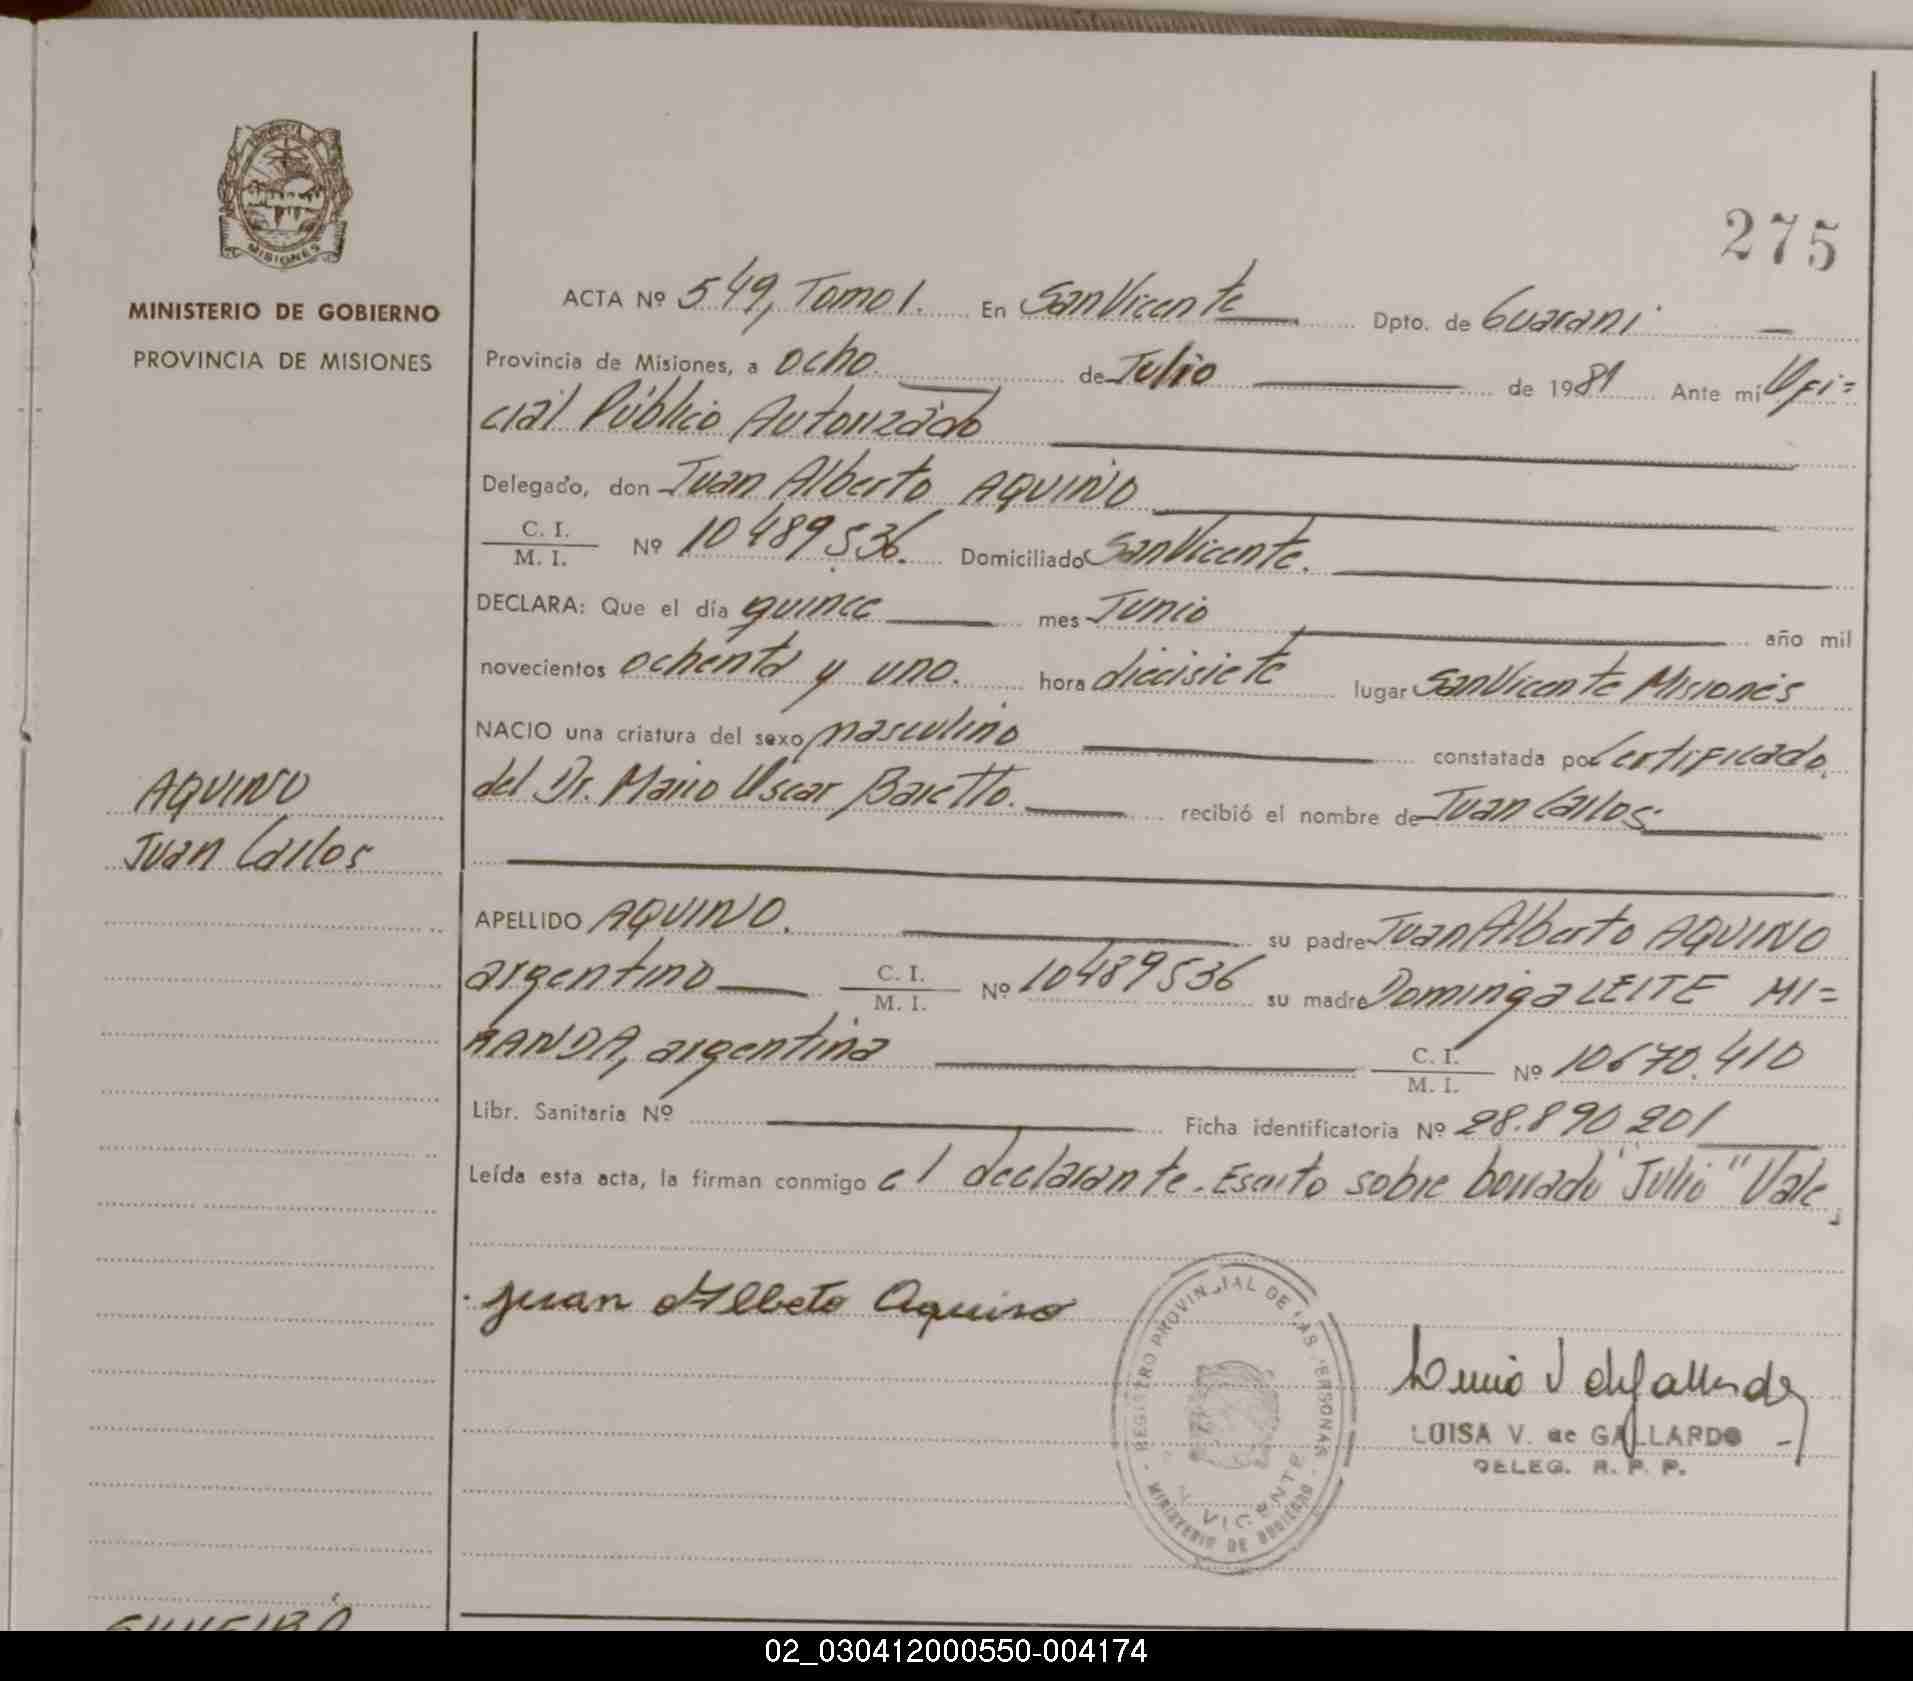 275
MISIONES
MINISTERIO DE GOBIERNO
PROVINCIA DE MISIONES
ACTA Nº 549, Tomo 1. En San Vicente Dpto. de Guaraní
Provincia de Misiones, a ocho. de Julio de 1981 Ante mí Ofi=
cial Público Autorizado
Delegado, don Juan Alberto AQUINO
C. I.
M. I. Nº 10489536. Domiciliado San Vicente.
DECLARA: Que el día quince mes Junio año mil
novecientos ochenta y uno. hora diecisiete lugar San Vicente Misiones
NACIO una criatura del sexo masculino constatada por Certificado
del Dr. Mario Oscar Baretto. recibió el nombre de Juan Carlos
AQUINO
Juan Carlos
APELLIDO AQUINO. su padre Juan Alberto AQUINO
argentino C. I.
M. I. Nº 10489536 su madre Dominga LEITE MI=
RANDA, argentina C. I.
M. I. Nº 10670.410
Libr. Sanitaria Nº Ficha identificatoria Nº 28.890.201
Leída esta acta, la firman conmigo el declarante. Escrito sobre borrado "Julio" Vale
Juan Alberto Aquino
REGISTRO PROVINCIAL DE LAS PERSONAS
VICENTE
MINISTERIO DE GOBIERNO
LUISA V. de GALLARDO
DELEG. R. P. P.
02_030412000550-004174